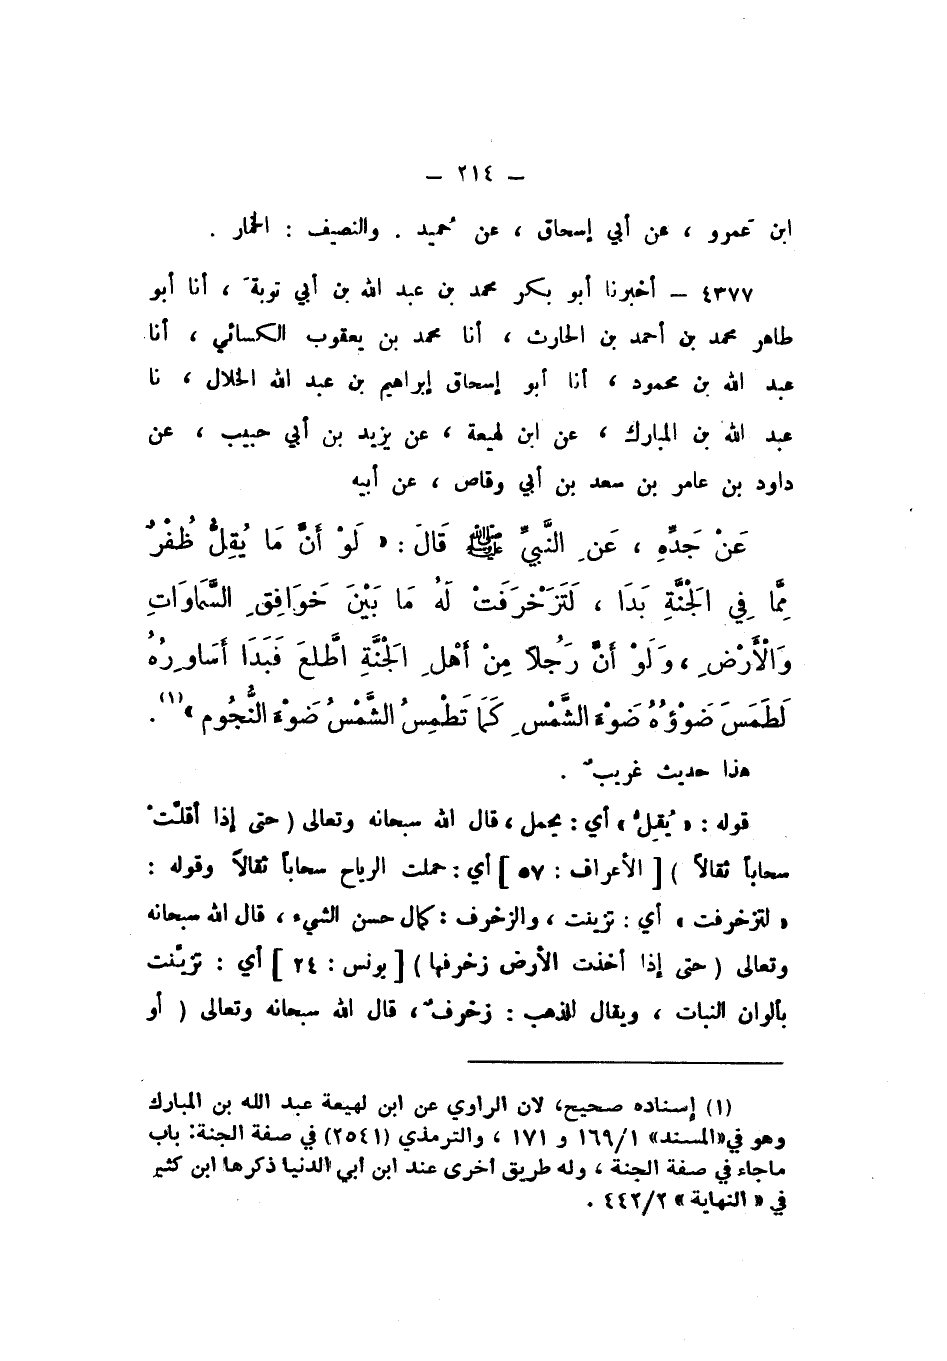 – ٢١٤ –
ابن عَمرو ، عن أبي إسحاق ، عن ُحميد . والنصيف : الخمار .
٤٣٧٧ – أخبرنا أبو بكر محمد بن عبد الله بن أبي توبةَ ، أنا أبو
طاهر محمد بن أحمد بن الحارث ، أنا محمد بن يعقوب الكسائي ، أنا
عبد الله بن محمود ، أنا أبو إسحاق إبراهيم بن عبد الله الخلال ، نا
عبد الله بن المبارك ، عن ابن لهيعة ، عن يزيد بن أبي حبيب ، عن
داود بن عامر بن سعد بن أبي وقاص ، عن أبيه
عَنْ جَدِّهِ ، عَنِ النَّبِيِّ ﷺ قَالَ : « لَوْ أَنَّ مَا يُقِلُّ ظُفْرٌ
مِمَّا فِي الْجَنَّةِ بَدَا ، لَتَزَخْرَفَتْ لَهُ مَا بَيْنَ خَوَافِقِ السَّمَاوَاتِ
وَالْأَرْضِ ، وَلَوْ أَنَّ رَجُلاً مِنْ أَهْلِ الْجَنَّةِ اطَّلَعَ فَبَدَا أَسَاوِرُهُ
لَطَمَسَ ضَوْؤُهُ ضَوْءَ الشَّمْسِ كَمَا تَطْمِسُ الشَّمْسُ ضَوْءَ النُّجُومِ »(١) .
هذا حديث غريبٌ .
قوله : « يُقِلُّ » أي : يحمل ، قال الله سبحانه وتعالى ( حتى إذا أقلّتْ
سحاباً ثقالاً ) [ الأعراف : ٥٧ ] أي : حملت الرياح سحاباً ثقالاً وقوله :
« لتزخرفت » أي : تزينت ، والزخرف : كمال حسن الشيء ، قال الله سبحانه
وتعالى ( حتى إذا أخذت الأرض زخرفها ) [ يونس : ٢٤ ] أي : تزيّنت
بألوان النبات ، ويقال للذهب : زخرفٌ ، قال الله سبحانه وتعالى ( أو
(١) إسناده صحيح، لان الراوي عن ابن لهيعة عبد الله بن المبارك
وهو في «المسند» ١٦٩/١ و ١٧١ ، والترمذي (٢٥٤١) في صفة الجنة: باب
ماجاء في صفة الجنة ، وله طريق اخرى عند ابن أبي الدنيا ذكرها ابن كثير
في « النهاية » ٤٤٢/٢ .